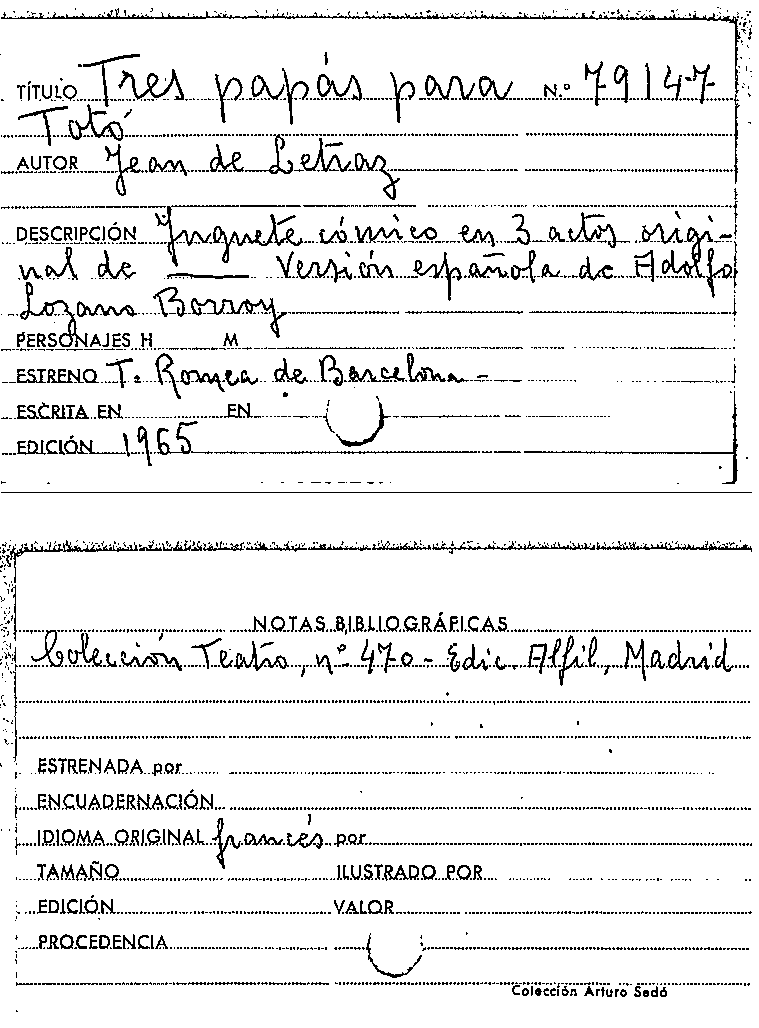 TÍTULO Tres papás para N.º 79147
Totó
AUTOR Jean de Letraz
DESCRIPCIÓN Juguete cómico en 3 actos origi-
nal de —— Versión española de Adolfo
Lozano Borroy
PERSONAJES H M
ESTRENO T. Romea de Barcelona -
ESCRITA EN EN
EDICIÓN 1965
NOTAS BIBLIOGRÁFICAS
Colección Teatro, nº 470 - Edic. Alfil, Madrid
ESTRENADA por
ENCUADERNACIÓN
IDIOMA ORIGINAL francés por
TAMAÑO ILUSTRADO POR
EDICIÓN VALOR
PROCEDENCIA
Colección Arturo Sedó